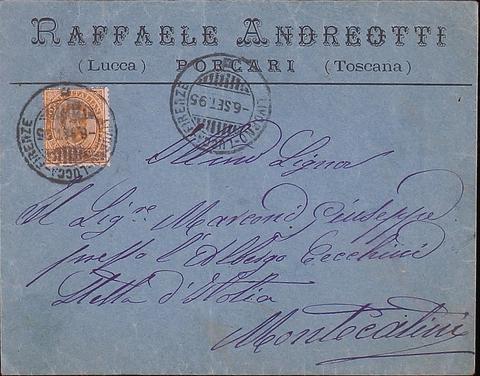 RAFFAELE ANDREOTTI
(Lucca) PORCARI (Toscana)
LIVORNO-LUCCA-FIRENZE
-6.SET.95
LUCCA-FIRENZE
Il Sigre Marconi Giuseppe
presso l'Albergo Cecchini
Stella d'Italia
Montecatini